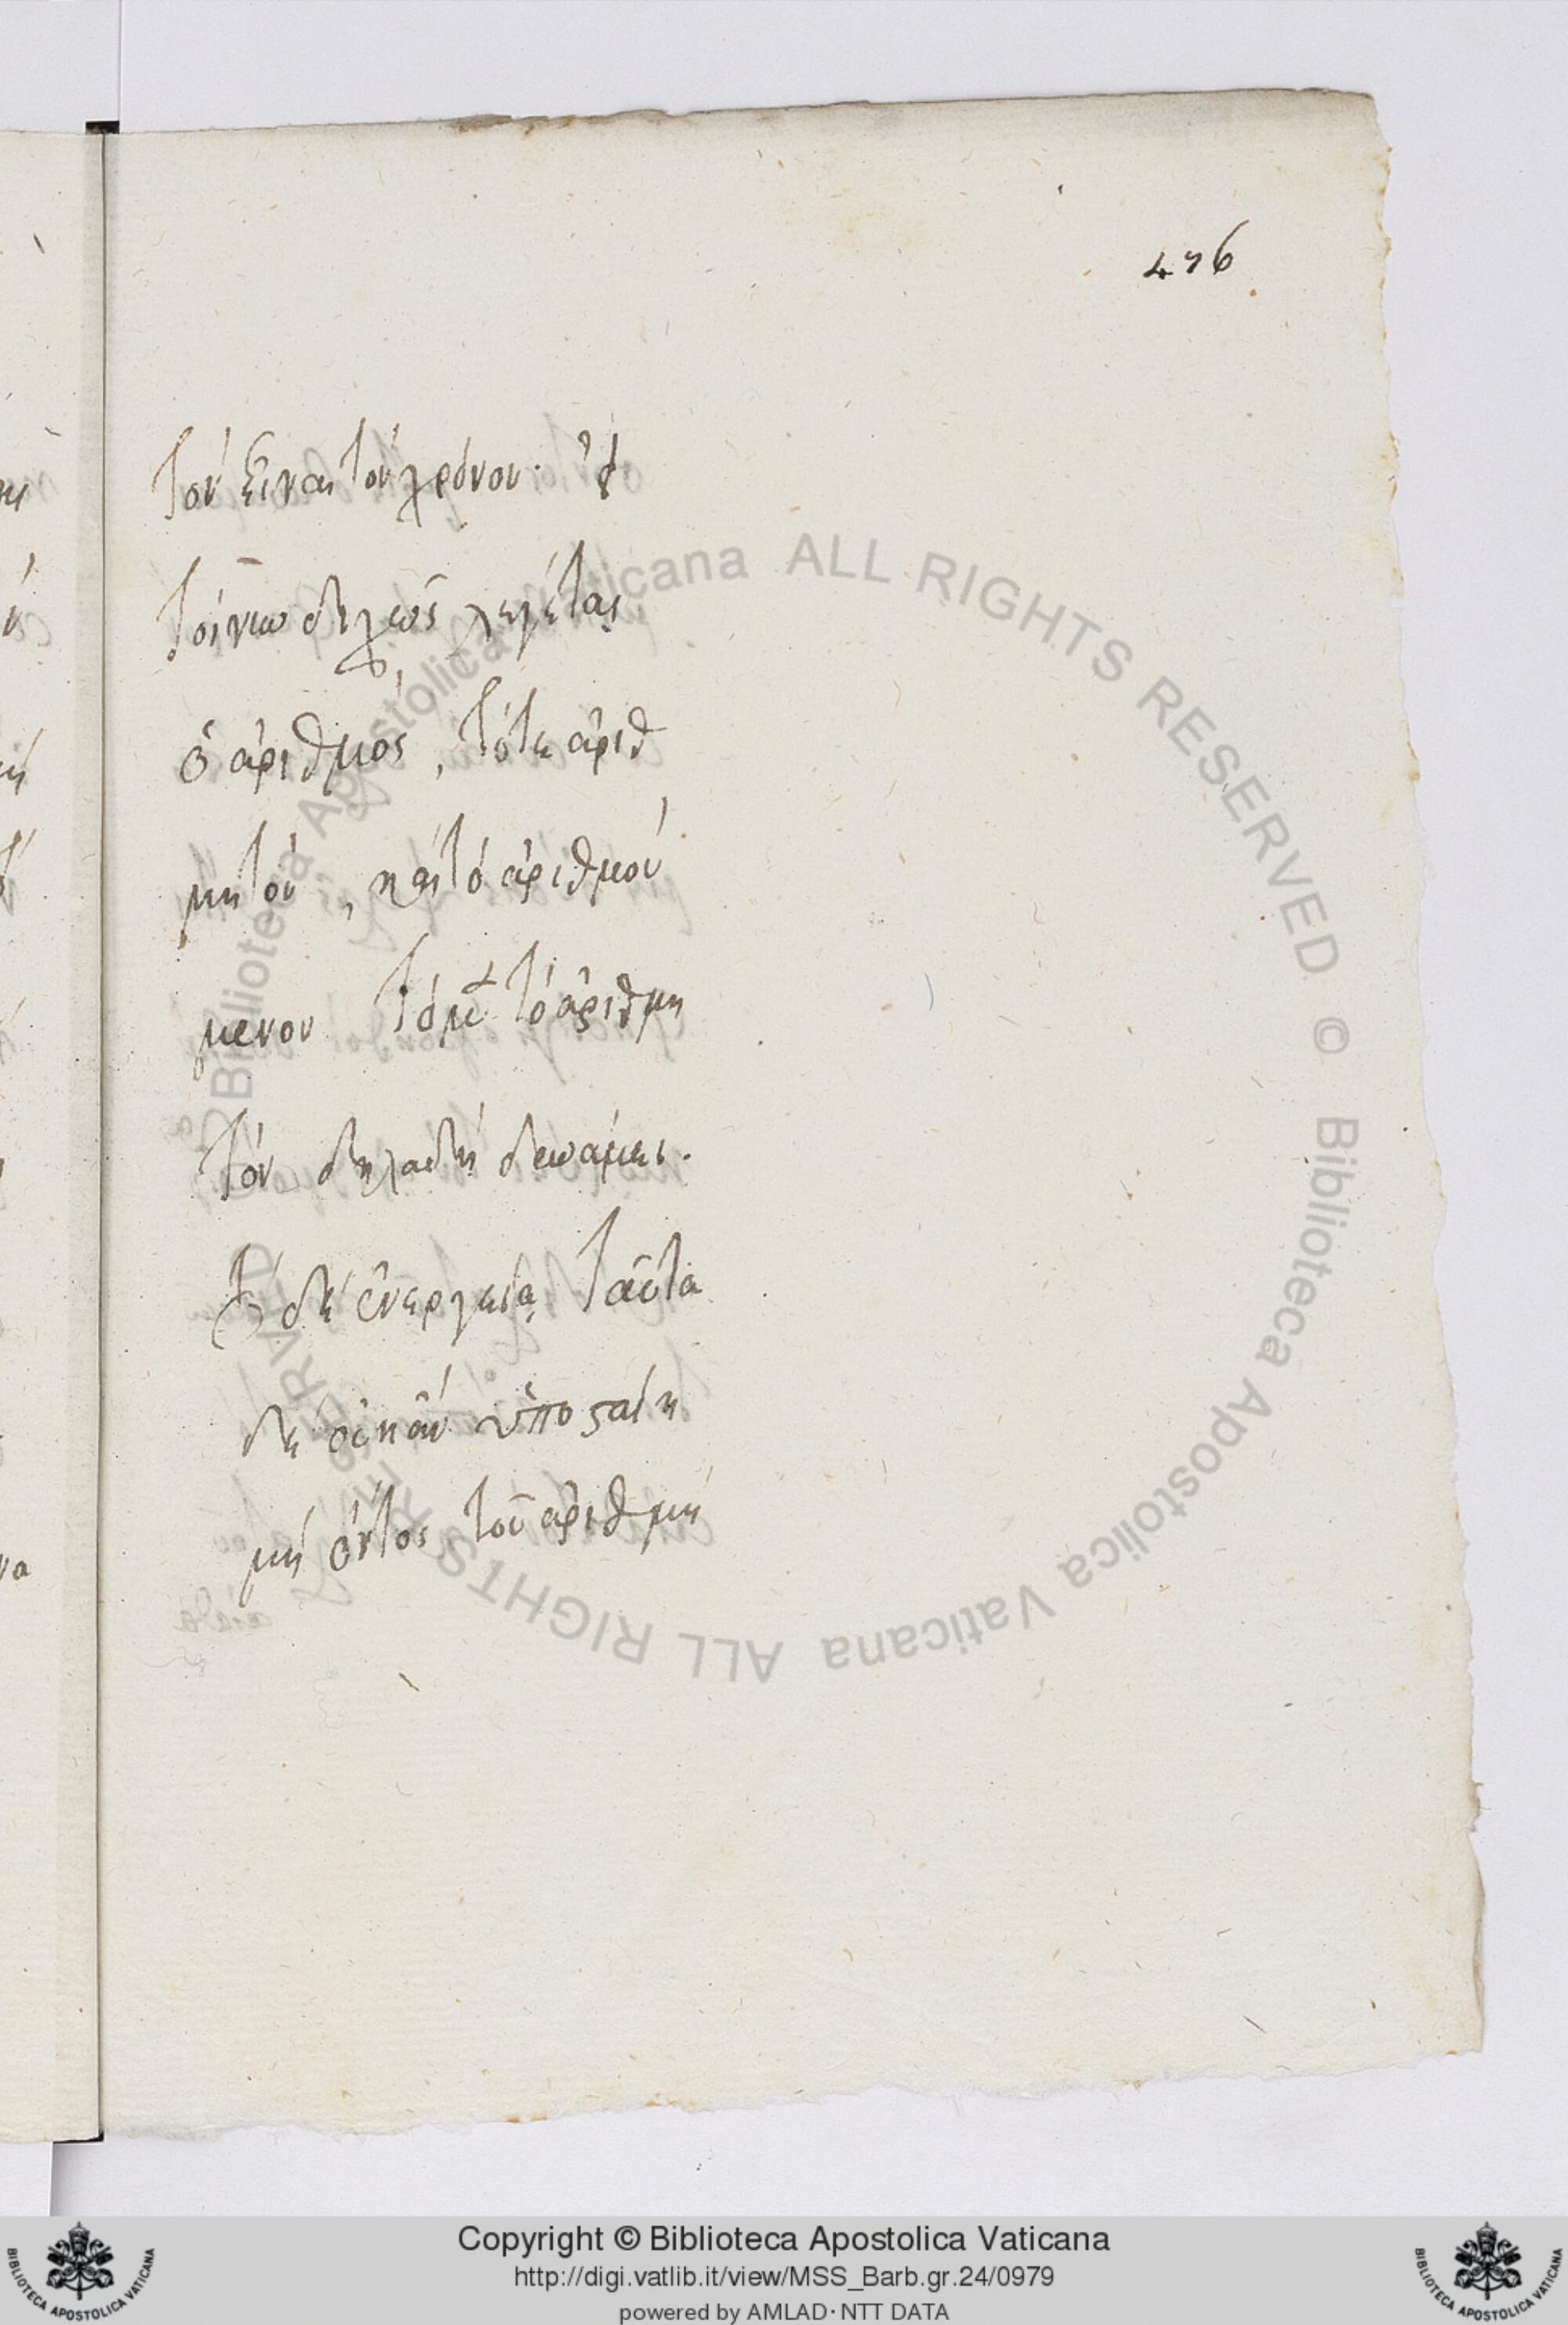 476
τὸν εἶναι τὸν χρόνον·
τοίνυν διχῶς λέγεται
ὁ ἀριθμὸς, τό τε ἀριθ
μητὸν, καὶ τὸ ἀριθμού
μενον τὸ μὲν τὸ ἀριθμη
τὸν δηλαδὴ δυνάμει.
τὸ δὲ ἐνεργείᾳ ταῦτα
δὲ οὐκ ἂν ὑποσταίη
μὴ ὄντος τοῦ ἀριθμή
Biblioteca Apostolica Vaticana ALL RIGHTS RESERVED © Biblioteca Apostolica Vaticana ALL RIGHTS RESERVED ©
BIBLIOTECA APOSTOLICA VATICANA
Copyright © Biblioteca Apostolica Vaticana
http://digi.vatlib.it/view/MSS_Barb.gr.24/0979
powered by AMLAD·NTT DATA
BIBLIOTECA APOSTOLICA VATICANA